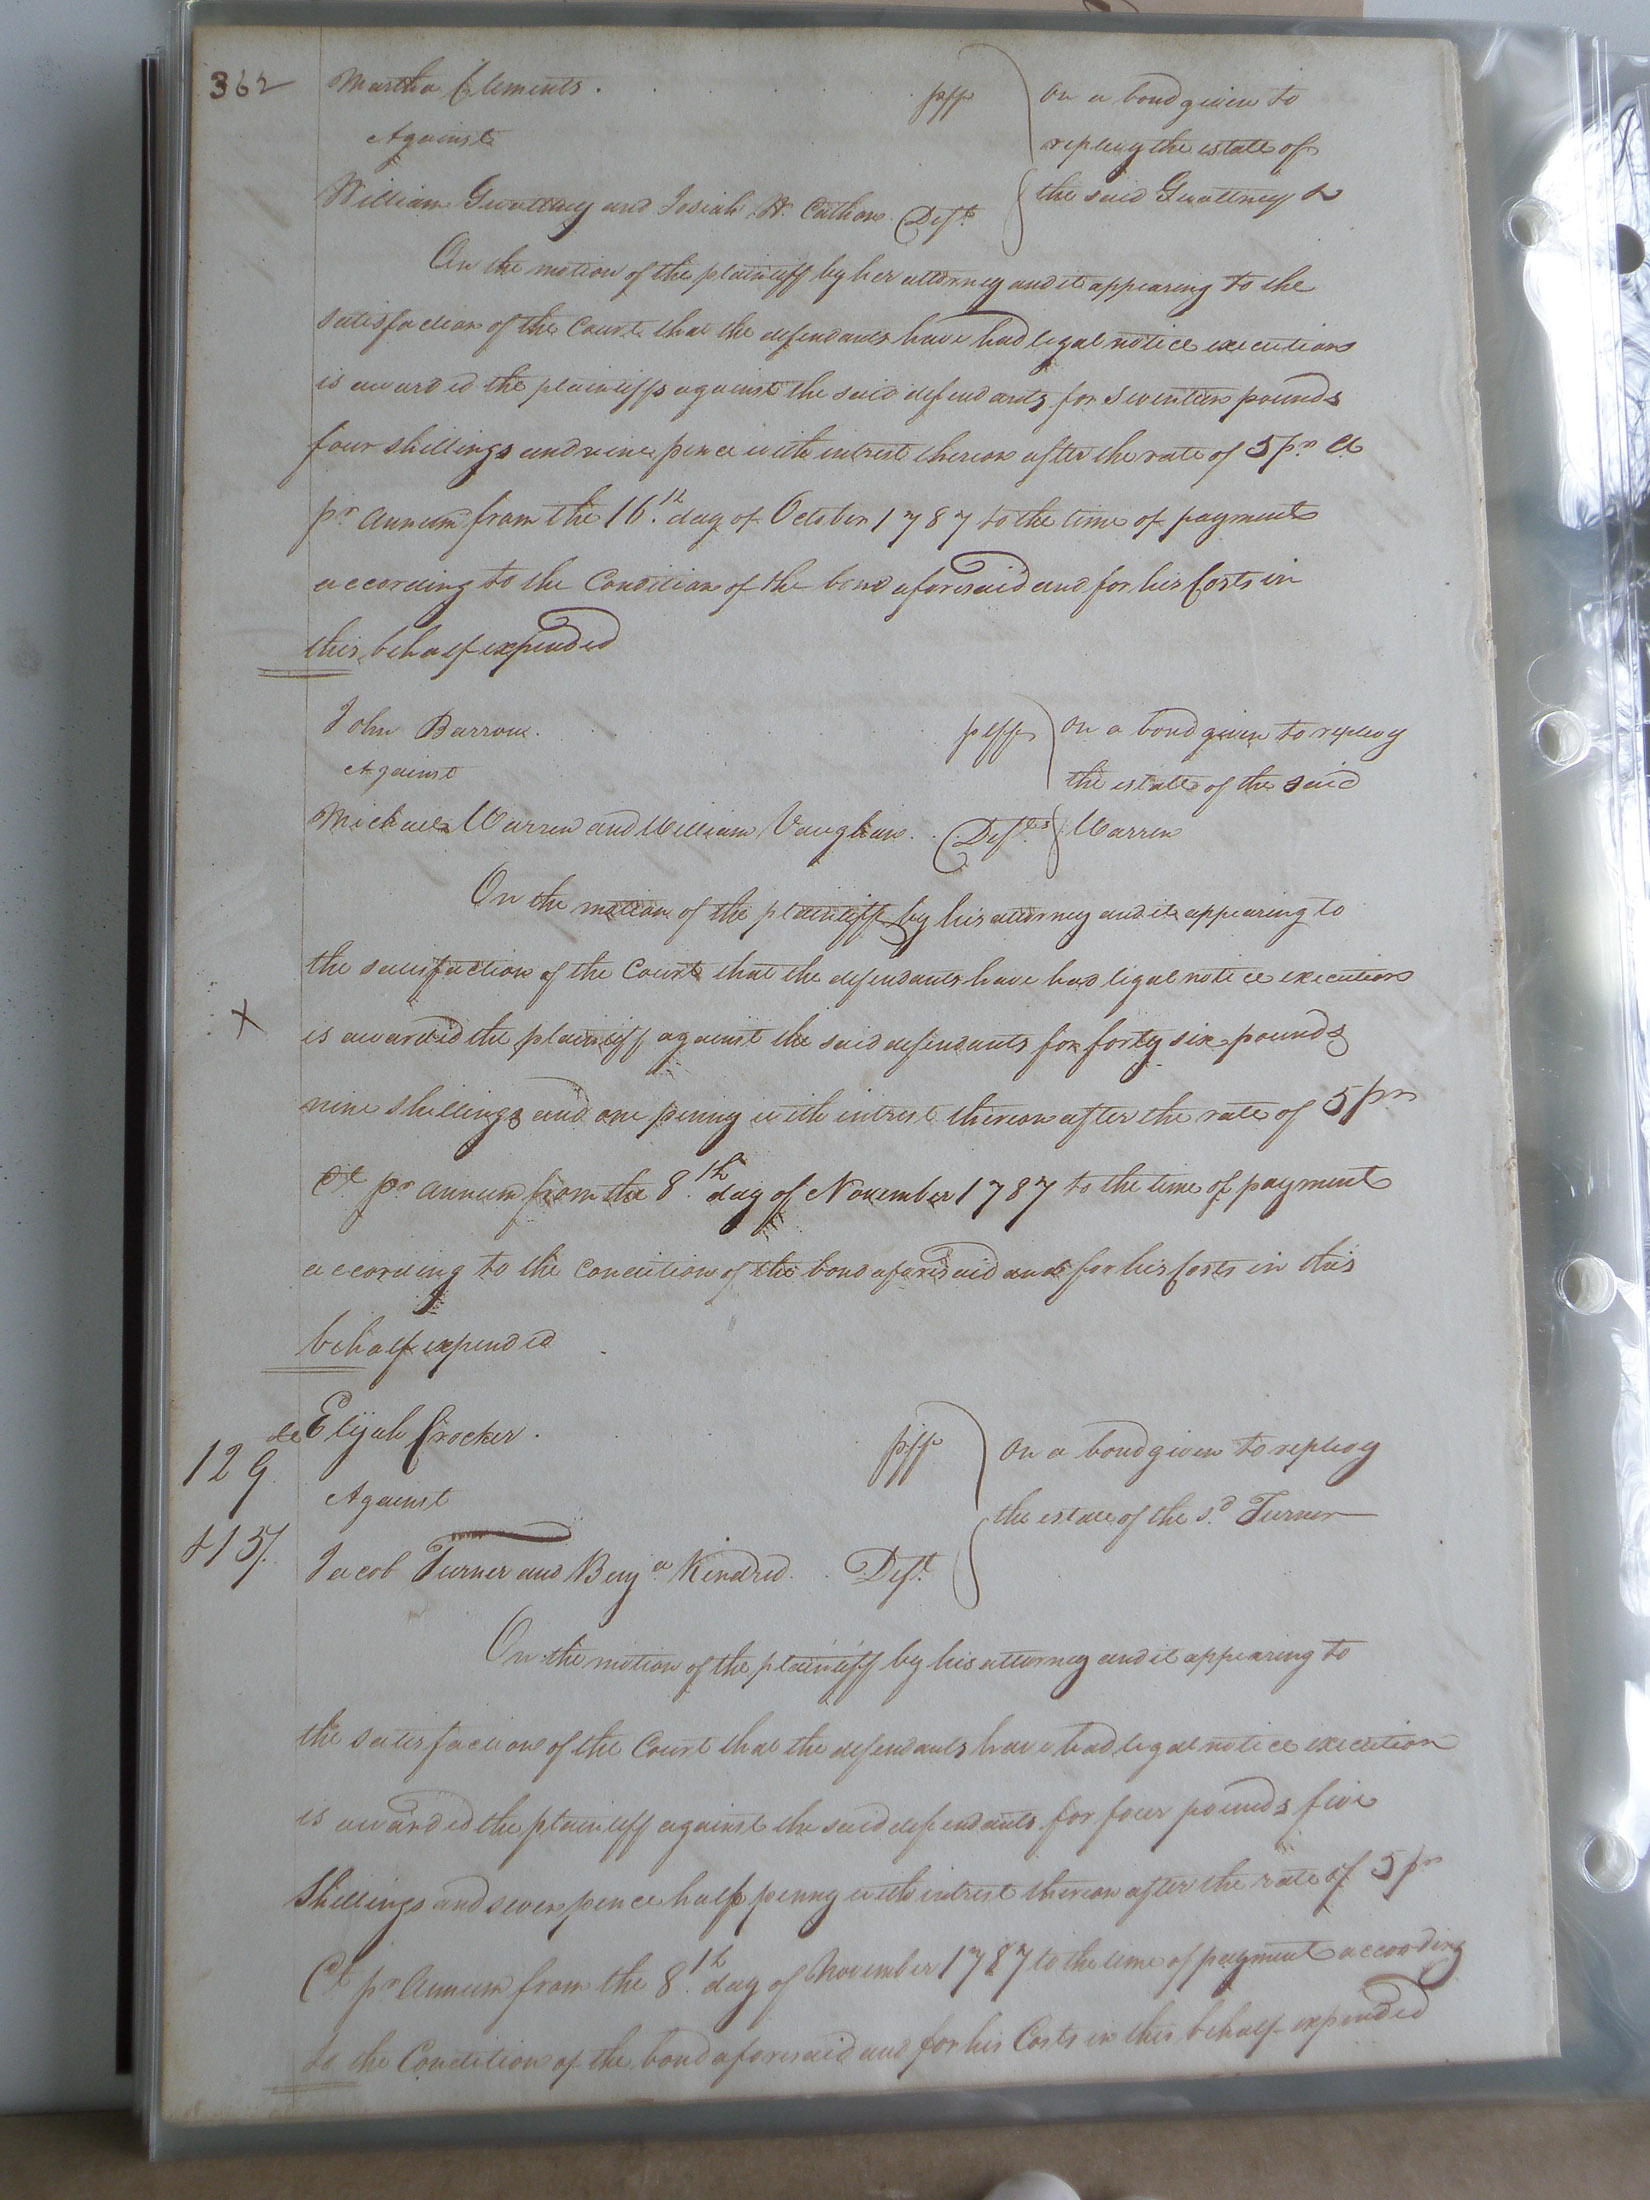 362
Martha Clements . plff on a bond given to
Against replevy the estate of
William Gwaltney and Josiah W. Cathon Defts the said Gwaltney &
On the motion of the plaintiff by her attorney and it appearing to the
satisfaction of the Court that the defendants have had legal notice execution
is awarded the plaintiffs against the said defendants for Seventeen pounds
four shillings and nine pence with intrest thereon after the rate of 5 pr Ct
pr annum from the 16.th day of October 1787 to the time of payment
according to the Condition of the bond aforesaid and for his Costs in
this behalf expended
John Barrow. plff on a bond given to replevy
Against the estate of the said
Michael Warren and William Vaughan. . Defts Warren
On the motion of the plaintiff by his attorney and it appearing to
the satisfaction of the Court that the defendants have had legal notice execution
X
is awarded the plaintiff against the said defendants for forty six pounds
nine shillings and one penny with intrest thereon after the rate of 5 pr
Ct pr annum from the 8.th day of November 1787 to the time of payment
according to the Condition of the bond aforesaid and for his Costs in this
behalf expended
Elijah Crocker . plff on a bond given to replevy
129
Against the estate of the sd Turner
&137.
Jacob Turner and Benja Kindred. . Deft
On the motion of the plaintiff by his attorney and it appearing to
the satisfaction of the Court that the defendants have had legal notice execution
is awarded the plaintiff against the said defendants for four pounds five
Shillings and seven pence half penny with intrest thereon after the rate of 5 pr
Ct pr Annum from the 8.th day of November 1787 to the time of payment according
to the Condition of the bond aforesaid and for his Costs in this behalf expended